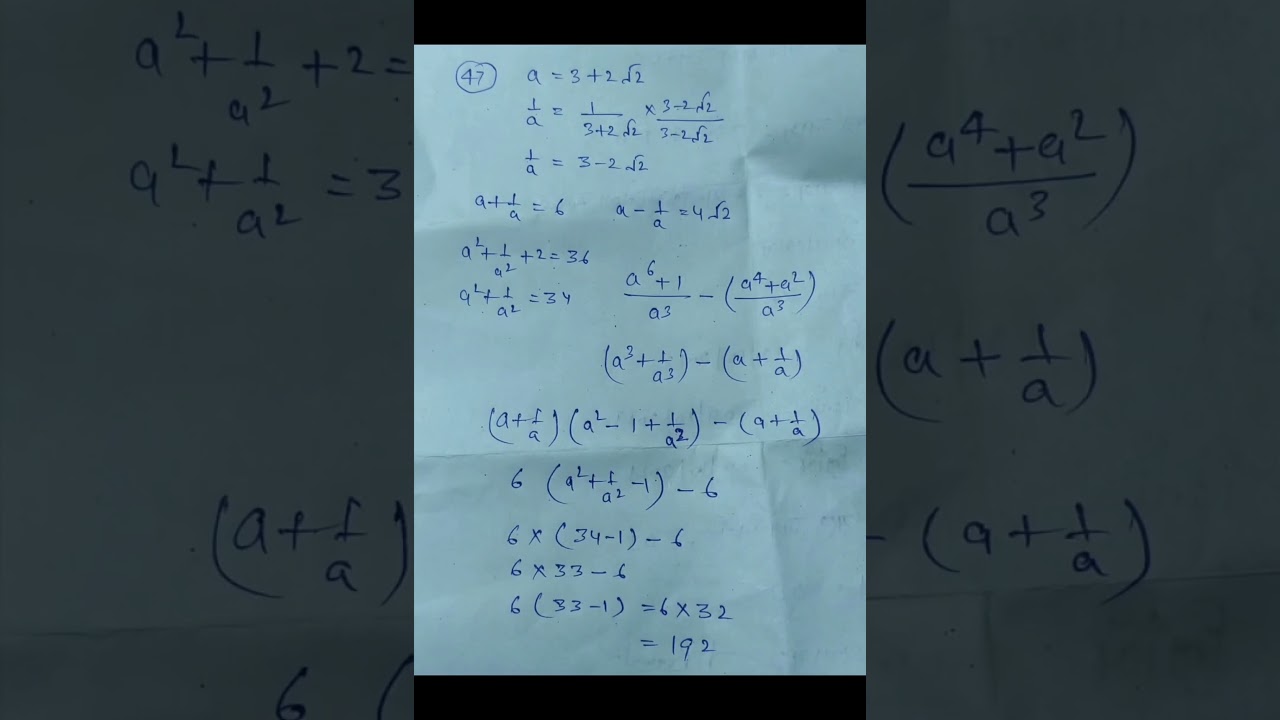 47 a = 3+2√2
1/a = 1/(3+2√2) × (3-2√2)/(3-2√2)
1/a = 3-2√2
a+1/a = 6 a - 1/a = 4√2
a²+1/a²+2=36
a²+1/a² = 34
(a⁶+1)/a³ - ((a⁴+a²)/a³)
(a³+1/a³) - (a+1/a)
(a+1/a)(a²-1+1/a²) - (a+1/a)
6 (a²+1/a²-1) - 6
6×(34-1)-6
6×33-6
6(33-1) = 6×32
= 192